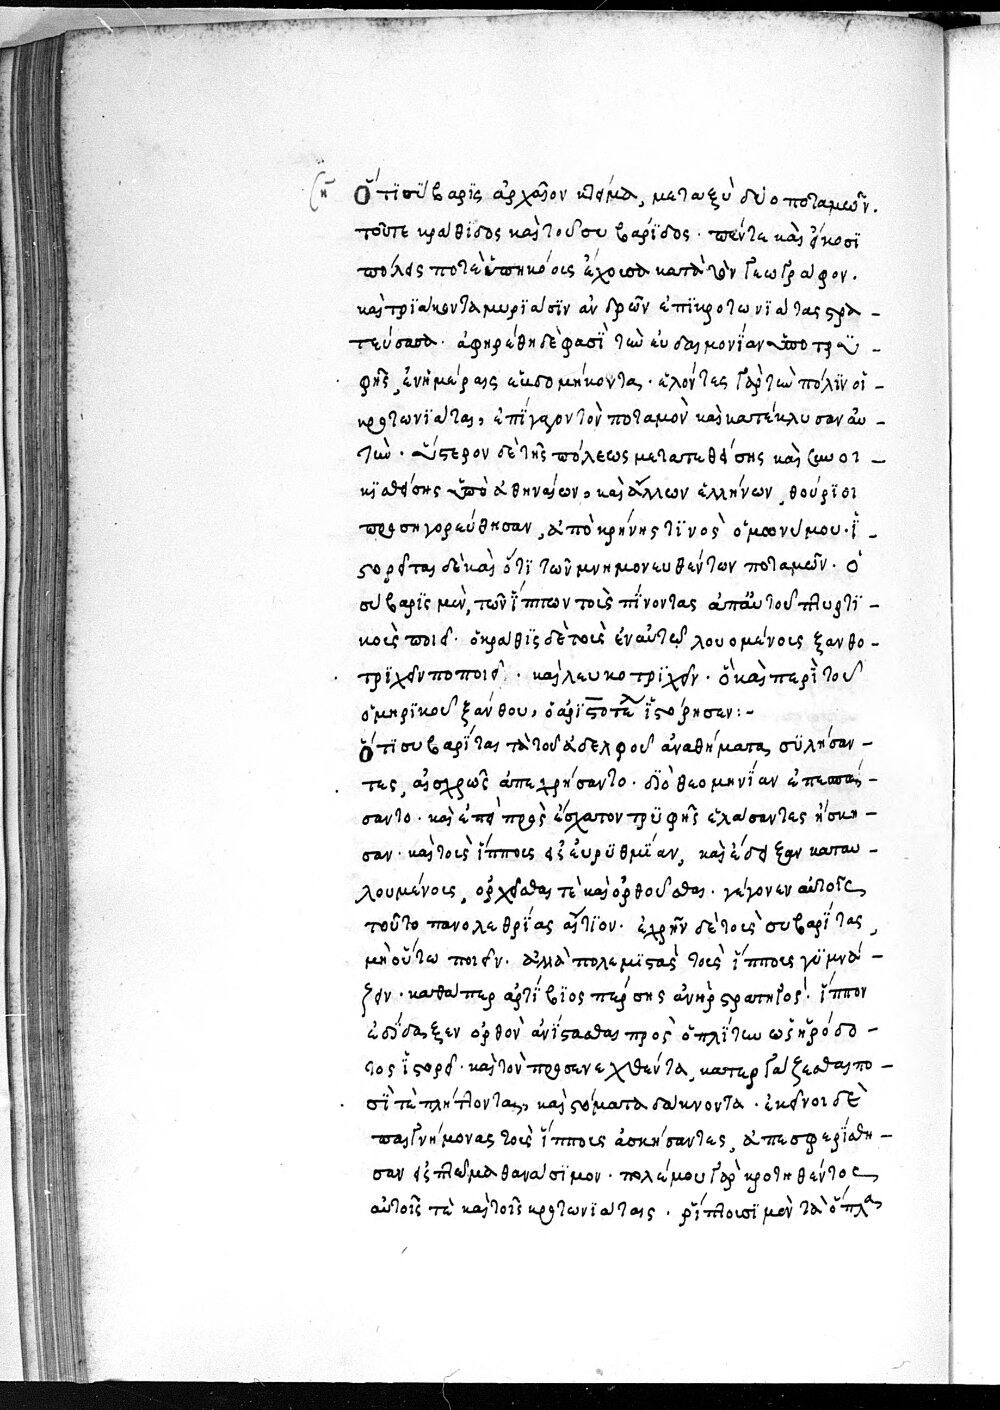 Ὅτι σύβαρις ἀρχαῖον κτίσμα, μεταξὺ δύο ποταμῶν.
τοῦτε κράθιδος καὶ τοῦ συβάριδος· πέντε καὶ εἴκοσι
πόλεις ποτὲ ὑπηκόοις ἔχουσα κατὰ τὸν γεωγράφον.
καὶ τριάκοντα μυριάσιν ἀνδρῶν ἐπὶ κροτωνιάτας στρα-
τεύσασα· ἀφηρέθη δέ φασὶ τὴν εὐδαιμονίαν ὑπὸ τρυ-
φῆς, ἐν ἡμέραις ἑβδομήκοντα· ἑλόντες γὰρ τὴν πόλιν οἱ
κροτωνιᾶται, ἐπήγαγον τὸν ποταμὸν καὶ κατέκλυσαν αὐ-
τήν· ὕστερον δὲ τῆς πόλεως μετατεθείσης καὶ συνοι-
κισθείσης ὑπὸ ἀθηναίων, καὶ ἄλλων ἑλλήνων, θούριοι
προσηγορεύθησαν, ἀπὸ κρήνης τινὸς ὁμωνύμου· ἱ-
στορεῖται δὲ καὶ ὅτι τῶν μνημονευθέντων ποταμῶν· ὁ
σύβαρις μὲν, τῶν ἵππων τοὺς πίνοντας ἀπ' αὐτοῦ πτυρτι-
κοὺς ποιεῖ· ὁ κράθις δὲ τοὺς ἐν αὐτῷ λουομένους ξανθο-
τριχεῖν ποποιεῖ· καὶ λευκοτριχεῖν· ὃ καὶ περὶ τοῦ
ὁμηρικοῦ ξάνθου, ὁ ἀριστοτέλ ἱστόρησεν:-
Ὅτι συβαρῖται τὰ τοῦ ἀδελφοῦ ἀναθήματα, συλήσαν-
τες, αἰσχρῶς ἀπεχρήσαντο· διὸ θεομηνίαν ἐπεσπά-
σαντο· καὶ ἐπεὶ πρὸς ἔσχατον τρυφῆς ἐλάσαντες ἤσκη-
σαν· καὶ τοὺς ἵππους ἐξ εὐρυθμίαν, καὶ ἐδειξαν καταυ-
λουμένους, ὀρχεῖσθαι τὲ καὶ ὀρθοῦσθαι· γέγονεν αὐτοῖς
τοῦτο πανολεθρίας αἴτιον· ἐχρῆν δὲ τοὺς συβαρίτας,
μὴ οὕτω ποιεῖν· ἀλλὰ πολεμιστὰς τοὺς ἵππους γυμνά-
ζειν· καθάπερ ἀρτίβιος πέρσης ἀνὴρ στρατηγός· ἵππον
ἐδίδαξεν ὀρθὸν ἀνίστασθαι πρὸς ὁπλίτην ὡς ἡρόδο-
τος ἱστορεῖ· καὶ τὸν προσενεχθέντα, κατεργάζεσθαι πο-
σὶ τὲ πλήττοντα, καὶ στόματα δάκνοντα· ἐκεῖνοι δὲ
παιγνήμονας τοὺς ἵππους ἀσκήσαντες, ἀπεσφερίσθη-
σαν ἐξ πλεῖσμα θανάσιμον· πολέμου γὰρ κροτηθέντος
αὐτοῖς τὲ καὶ τοῖς κροτωνιάταις· ῥίπτουσι μὲν τὰ ὅπλα